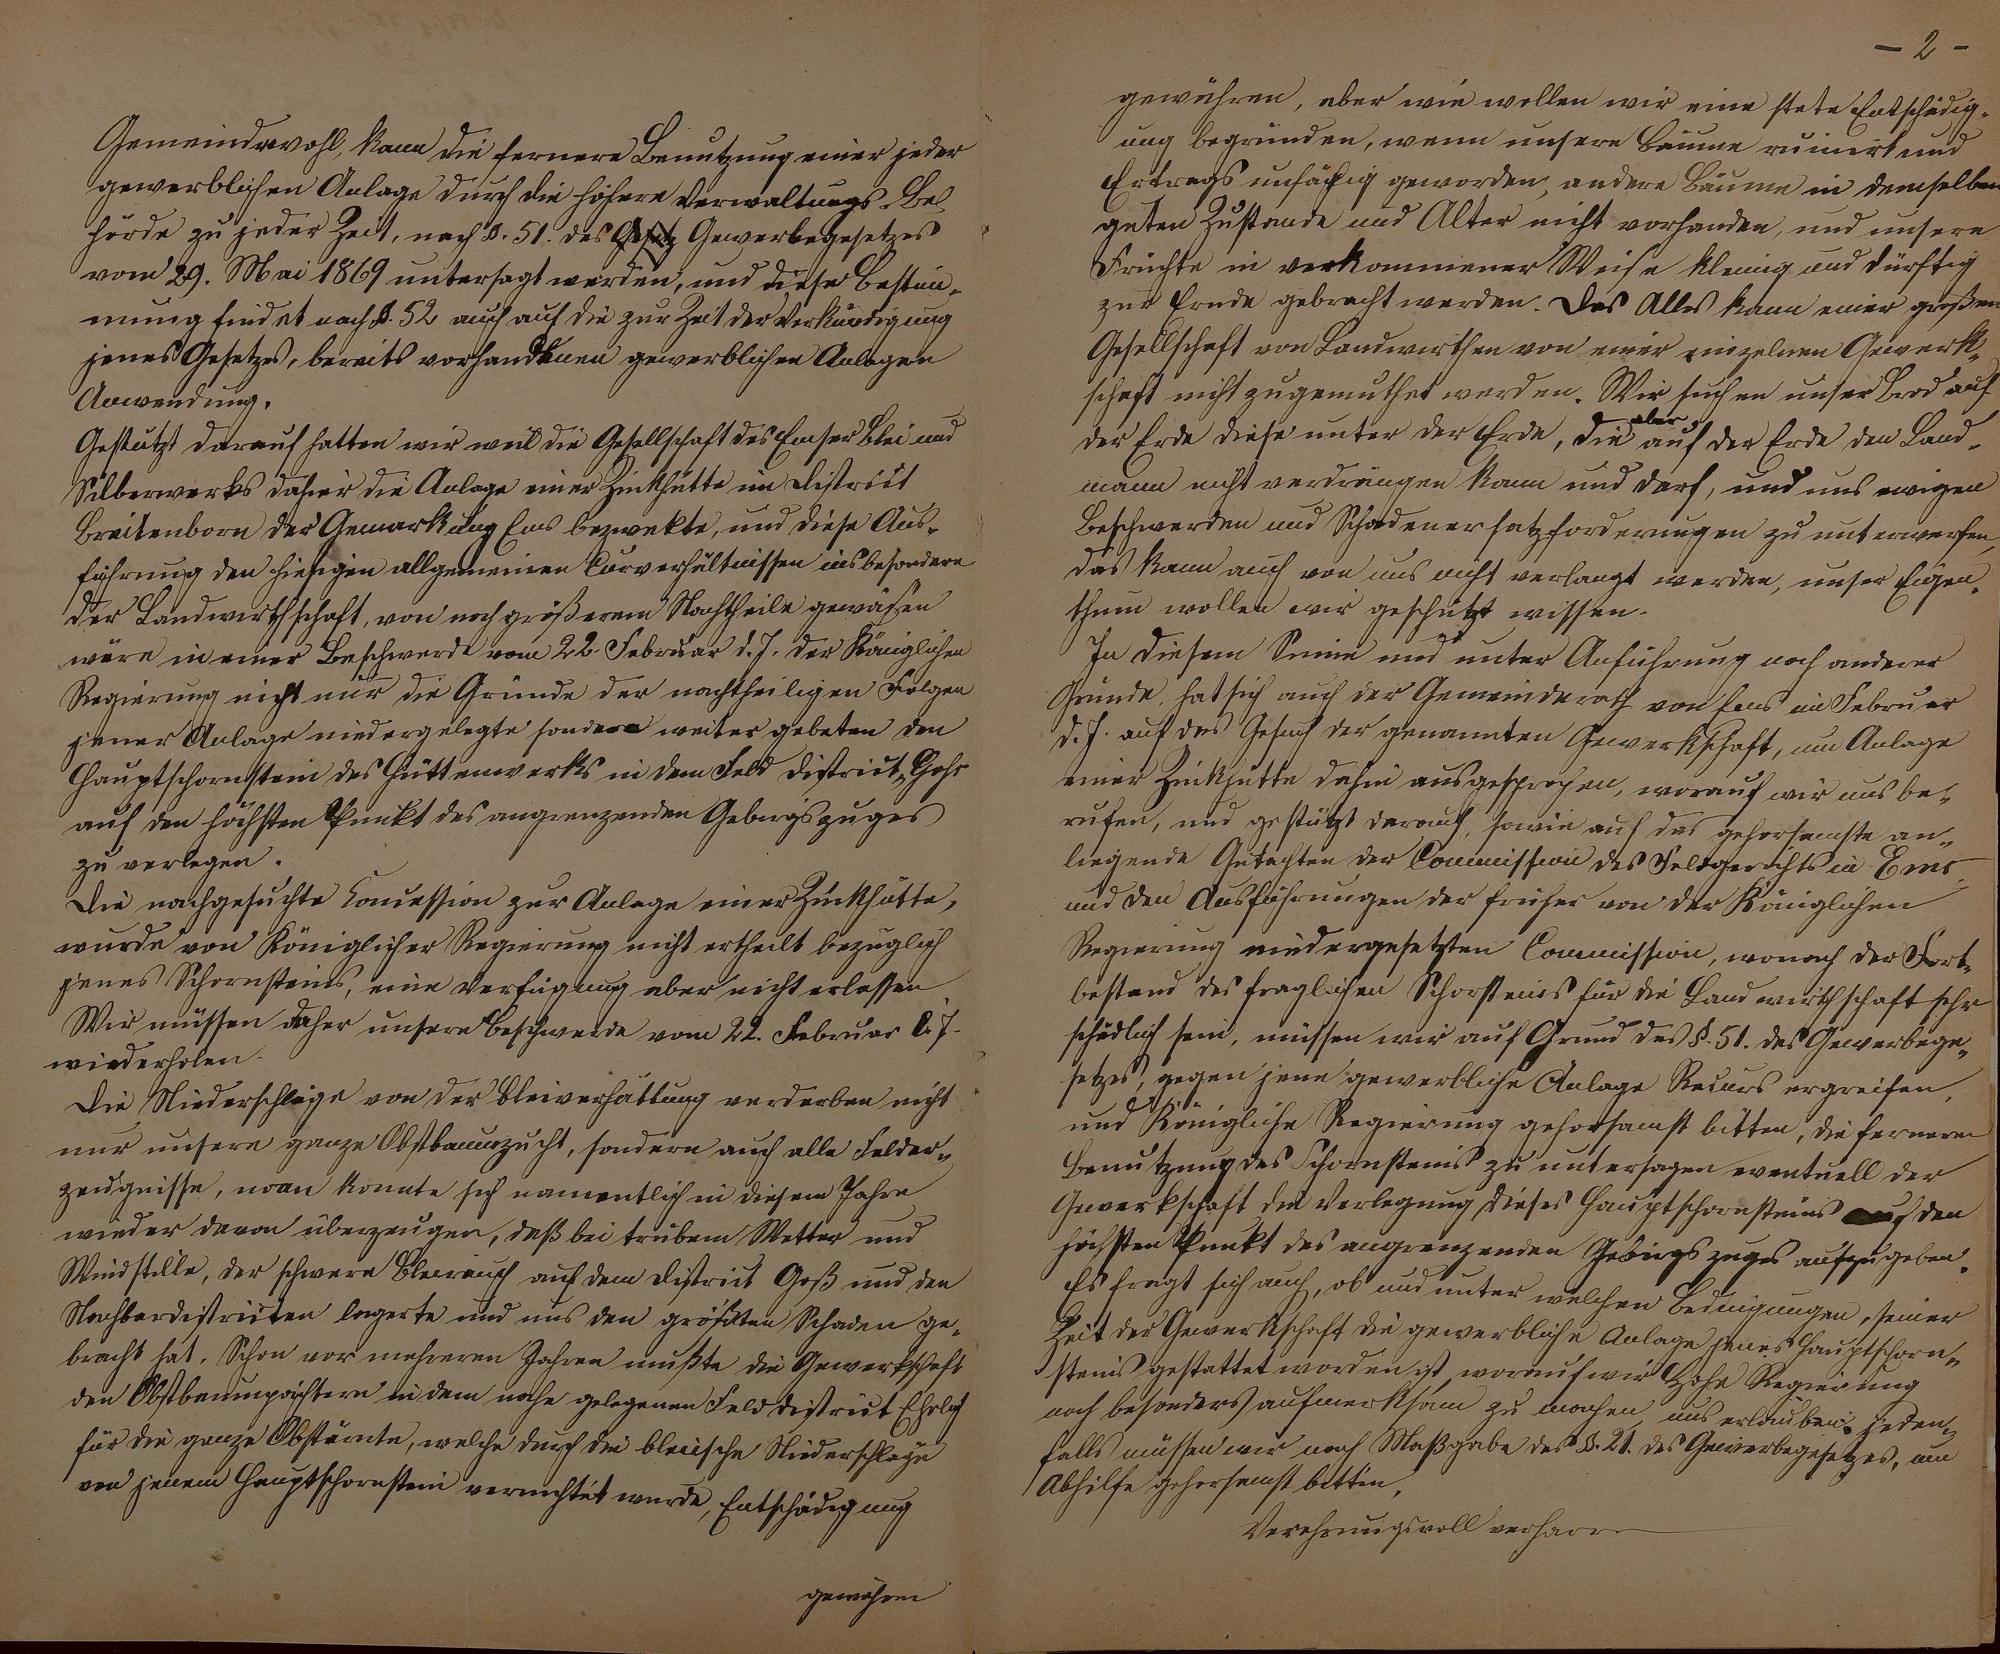 Gemeindewohl, kann die fernere Benutzung einer jeder
gewerblichen Anlage durch die höhere Verwaltungs-Be-
hörde zu jeder Zeit, nach §. 51. des Gesetz Gewerbegesetzes
vom 29. Mai 1869 untersagt werden, und diese Bestim-
mung findet nach §. 52 auch auf die zur Zeit der Verkündigung
jenes Gesetzes, bereits vorhandenen gewerblichen Anlagen
Anwendung.
Gestützt darauf hatten wir weil die Gesellschaft des Emser Blei und
Silberwerks dahier die Anlage einer Zinkhütte im District
Breitenborn der Gemarkung Ems bezwekte, und diese Aus-
führung den hiesigen allgemeinen Curverhältnissen insbesondere
der Landwirthschaft, von noch größerem Nachtheile gewäsen
wäre in einer Beschwerde vom 22. Februar d. J. der Königlichen
Regierung nicht nur die Gründe der nachtheiligen Folgen
jener Anlage niedergelegte sondern weiter gebeten den
Hauptschornstein des Hüttenwerks in dem Feld District
auf den höchsten Punkt des angrenzenden Gebirgszuges
zu verlegen.
Die nachgesuchte Concession zur Anlage einer Zinkhütte,
wurde von Königlicher Regierung nicht ertheilt bezüglich
jenes Schornsteins, eine Verfügung aber nicht erlassen
Wir müssen daher unsere Beschwerde vom 22. Februar d. J.
wiederholen.
Die Niederschläge von der Bleiverhüttung verderben nicht
nur unsere ganze Obstbaumzucht, sondern auch alle Felder-
zeugnisse, man konnte sich namentlich in diesem Jahre
wieder davon überzeugen, daß bei trübem Wetter und
Windstille, der schwere Bleirauch auf dem District Goß und den
Nachbardistricten lagerte und uns den größten Schaden ge-
bracht hat. Schon vor mehreren Jahren mußte die Gewerkschaft
den Obstbaumpächtern in dem nahe gelegenen Feld district Ehrlich
für die ganze Obstärnte, welche durch die bleiische Niederschläge
von jenem Hauptschornstein vernichtet wurde, Entschädigung
gewähren
- 2 -
gewähren, aber wie wollen wir eine stete Entschädig-
ung begründen, wenn unsere Bäume ruinirt und
Ertrags unfähig geworden, andere Bäume in demselben
guten Zustande und Alter nicht vorhanden, und unsere
Früchte in verkommener Weise klenig und dürftig
zur Ernde gebracht werden. Das Alles kann einer großen
Gesellschaft von Landwirthen von einer einzelnen Gewerk-
schaft nicht zugemuthet werden. Wir suchen unser Brod auf
der Erde diese unter der Erde, die aber auf der Erde den Land-
mann nicht verdrängen kann und darf, und uns ewigen
Beschwerden und Schadenersatzforderungen zu unterwerfen,
das kann auch von uns nicht verlangt werden, unser Eigen-
thum wollen wir geschützt wissen.
In diesem Sinne und unter Anführung noch anderer
Gründe, hat sich auch der Gemeinderath von Ems im Februar
d. J. auf das Gesuch der genannten Gewerkschaft, um Anlage
einer Zinkhütte dahin ausgesprochen, worauf wir uns be-
rufen, und gestützt darauf, sowie auf das gehorsamste an-
liegende Gutachten der Commission des Feldgerichts in Ems
und den Ausführungen der früher von der Königlichen
Regierung niedergesetzten Commission, wonach der Fort-
bestand des fraglichen Schorsteins für die Landwirthschaft sehr
schädlich sein, müssen wir auf Grund des §. 51. des Gewerbege-
setzes, gegen jene gewerbliche Anlage Recurs ergreifen,
und Königliche Regierung gehorsamst bitten, die fernere
Benutzung des Schornsteins zu untersagen eventuell der
Gewerkschaft die Verlegung dieses Hauptschornsteins auf den
höchsten Punkt des angrenzenden Gebirgszuges aufzugeben.
Es fragt sich auch, ob und unter welchen Bedingungen, seiner
Zeit der Gewerkschaft die gewerbliche Anlage jenes Hauptschorn-
steins gestattet worden ist, worauf wir Hohe Regierung
noch besonders aufmerksam zu machen, uns erlauben. Jeden-
falls müssen wir nach Maßgabe des §. 21. des Gewerbegesetzes, um
Abhilfe gehorsamst bitten,
Verehrungsvoll verharren